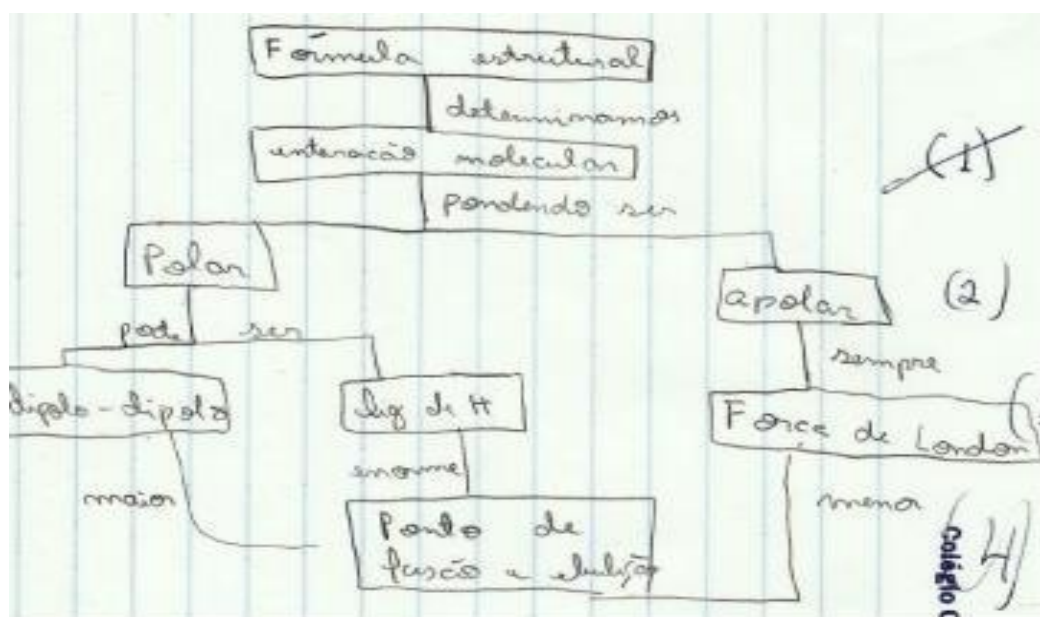 Fórmula estrutural
determinamos
interacão molecular
(1)
pondendo ser
Polar
apolar
(2)
pode ser
sempre
dipolo-dipolo
Lig de H
Force de London
maior
enorme
menor
Ponto de
fusão e ebulição
(4)
Colégio